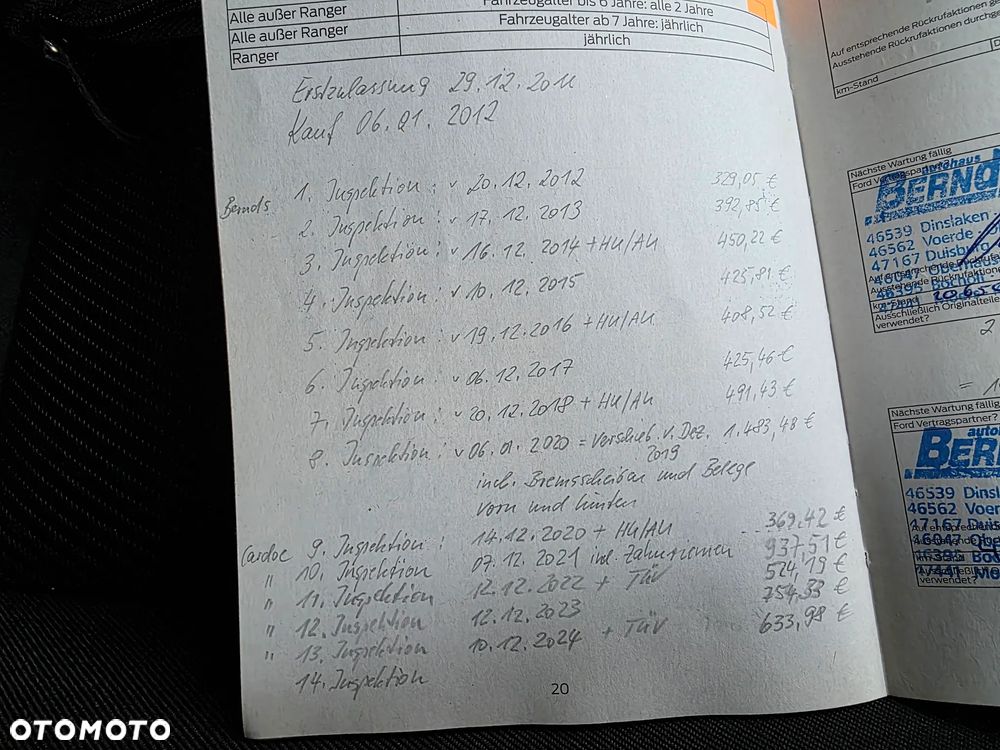 Alle außer Ranger
Fahrzeugalter bis 6 Jahre: alle 2 Jahre
Alle außer Ranger
Fahrzeugalter ab 7 Jahre: jährlich
Ranger
jährlich
Erstzulassung 29.12.2011
Kauf 06.01.2012
Bernds 1. Inspektion: v 20.12.2012 329,05 €
2. Inspektion: v 17.12.2013 392,85 €
3. Inspektion: v 16.12.2014 + HU/AU 450,22 €
4. Inspektion: v 10.12.2015 425,81 €
5. Inspektion: v 19.12.2016 + HU/AU 408,52 €
6. Inspektion: v 06.12.2017 425,46 €
7. Inspektion: v 20.12.2018 + HU/AU 491,43 €
8. Inspektion: v 06.01.2020 = Verschieb. v. Dez. 1.483,48 €
2019
incl. Bremsscheiben und Belege
vorn und hinten
9. Inspektion: 14.12.2020 + HU/AU 369,42 €
" 10. Inspektion 07.12.2021 incl. Zahnriemen 937,51 €
" 11. Inspektion 12.12.2022 + TÜV 524,19 €
" 12. Inspektion 12.12.2023 754,33 €
" 13. Inspektion 10.12.2024 + TÜV 633,98 €
14. Inspektion
20
Auf entsprechende Rückrufaktionen
Ausstehende Rückrufaktionen
km-Stand
Nächste Wartung fällig
Ford Vertragspartner?
autohaus
BERND
46539 Dinslaken
46562 Voerde
47167 Duisburg
km-Stand
Ausschließlich Originalteile
verwendet?
2
=
Nächste Wartung fällig
Ford Vertragspartner?
BERN
46539 Dinsla
46562 Voer
47167
verwendet?
OTOMOTO